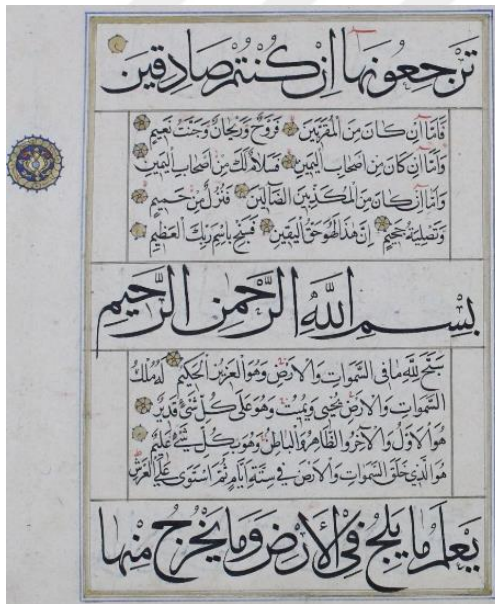 تَرْجِعُونَهَا اِنْ كُنْتُمْ صَادِقِينَ
فَاَمَّا اِنْ كَانَ مِنَ الْمُقَرَّبِينَ فَرَوْحٌ وَرَيْحَانٌ وَجَنَّتُ نَعِيمٍ
وَاَمَّا اِنْ كَانَ مِنْ اَصْحَابِ الْيَمِينِ فَسَلَامٌ لَكَ مِنْ اَصْحَابِ الْيَمِينِ
وَاَمَّا اِنْ كَانَ مِنَ الْمُكَذِّبِينَ الضَّالِّينَ فَنُزُلٌ مِنْ حَمِيمٍ
وَتَصْلِيَةُ جَحِيمٍ اِنَّ هٰذَا لَهُوَ حَقُّ الْيَقِينِ فَسَبِّحْ بِاسْمِ رَبِّكَ الْعَظِيمِ
بِسْمِ اللّٰهِ الرَّحْمٰنِ الرَّحِيمِ
سَبَّحَ لِلّٰهِ مَا فِى السَّمٰوَاتِ وَالْاَرْضِ وَهُوَ الْعَزِيزُ الْحَكِيمُ لَهُ مُلْكُ
السَّمٰوَاتِ وَالْاَرْضِ يُحْيِى وَيُمِيتُ وَهُوَ عَلٰى كُلِّ شَىْءٍ قَدِيرٌ
هُوَ الْاَوَّلُ وَالْاٰخِرُ وَالظَّاهِرُ وَالْبَاطِنُ وَهُوَ بِكُلِّ شَىْءٍ عَلِيمٌ
هُوَ الَّذِى خَلَقَ السَّمٰوَاتِ وَالْاَرْضَ فِى سِتَّةِ اَيَّامٍ ثُمَّ اسْتَوٰى عَلَى الْعَرْشِ
يَعْلَمُ مَا يَلِجُ فِى الْاَرْضِ وَمَا يَخْرُجُ مِنْهَا